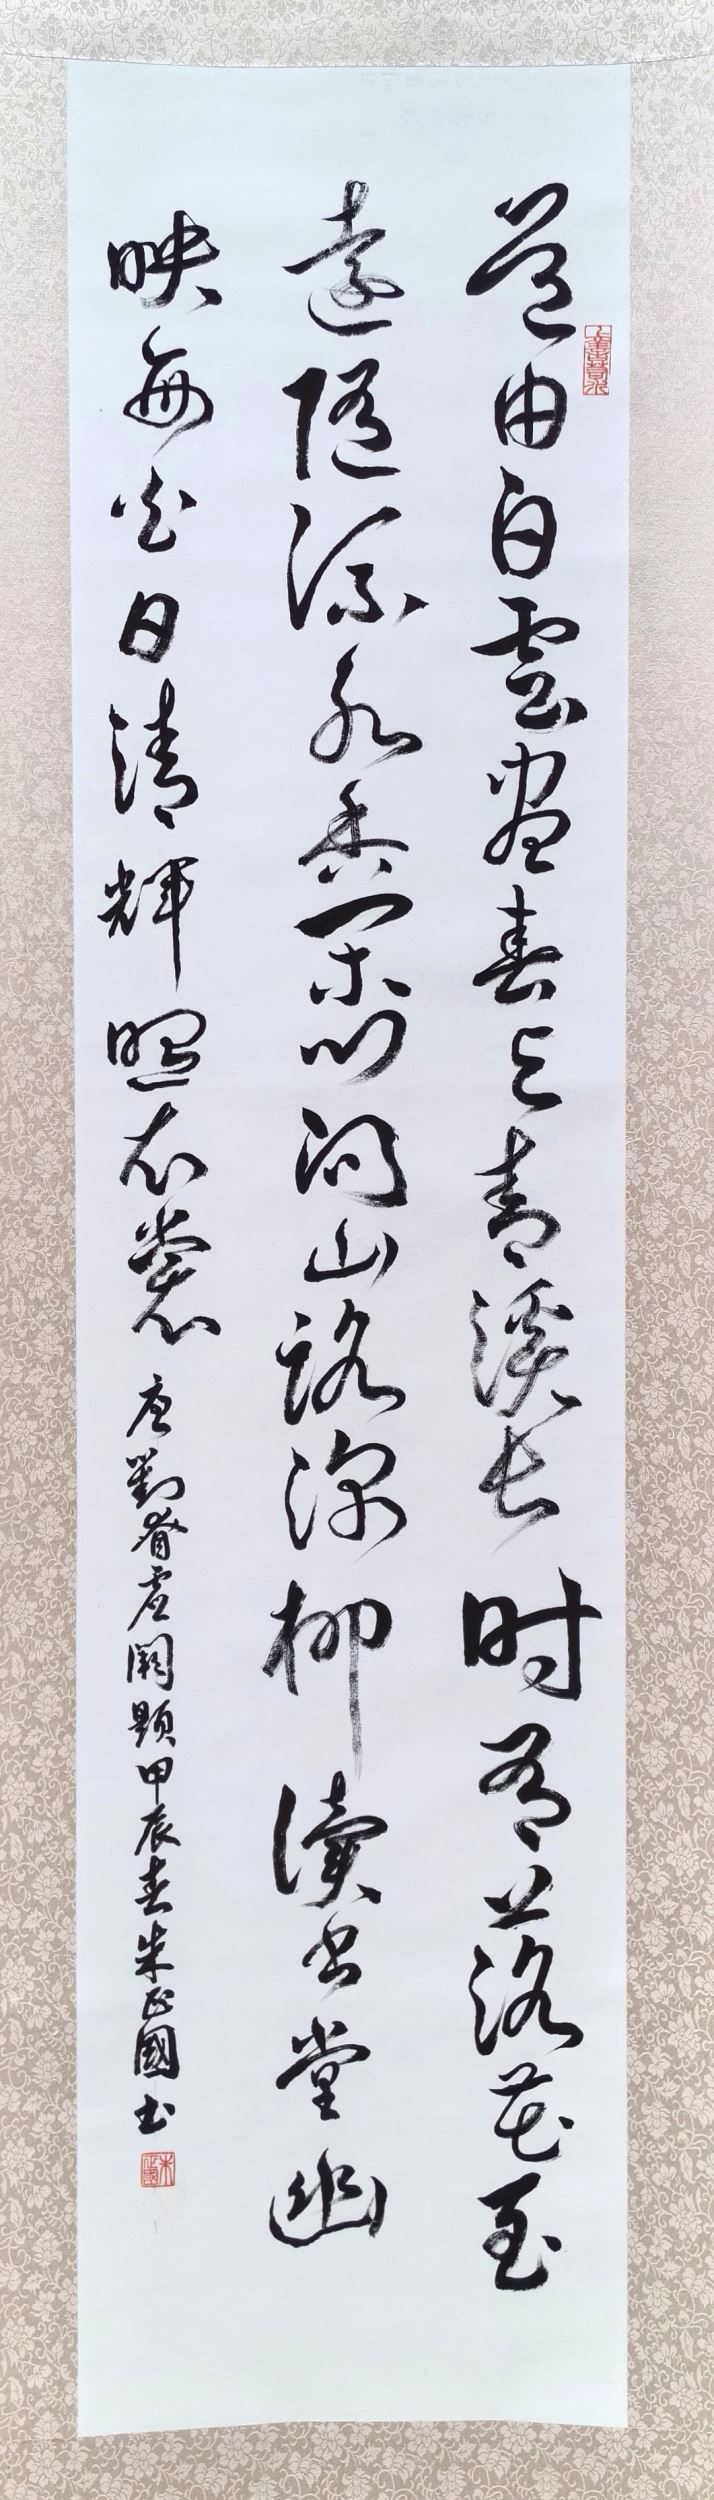 道由白雲盡春与青溪长时有落花至
遠隨流水香閑門向山路深柳讀書堂幽
映每白日清輝照衣裳 唐劉眘虛闕題甲辰春朱正國书
上善若水
朱正國